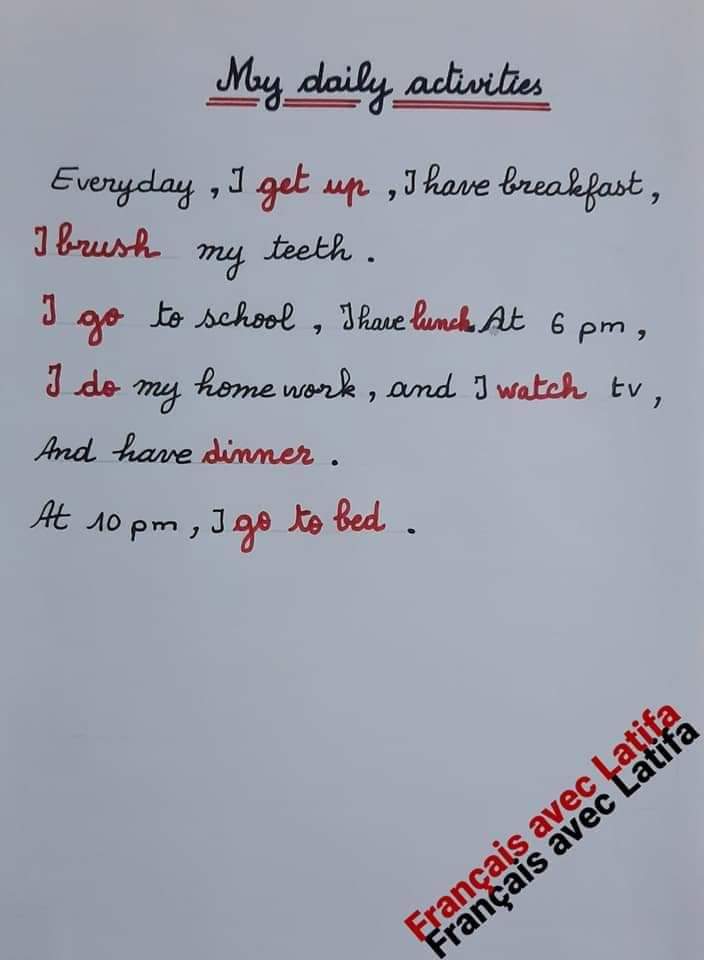 My daily activities
Everyday , I get up , I have breakfast ,
I brush my teeth .
I go to school , I have lunch. At 6 pm ,
I do my home work , and I watch tv ,
And have dinner .
At 10 pm , I go to bed .
Français avec Latifa
Français avec Latifa